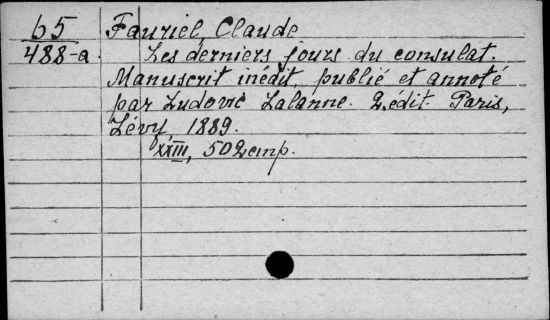 65 Fauriel, Claude
488-a. Les derniers jours du consulat.
Manuscrit inédit publié et annoté
par Ludovic Lalanne. 2.édit. Paris,
Lévy, 1889.
XXIII, 502 стр.